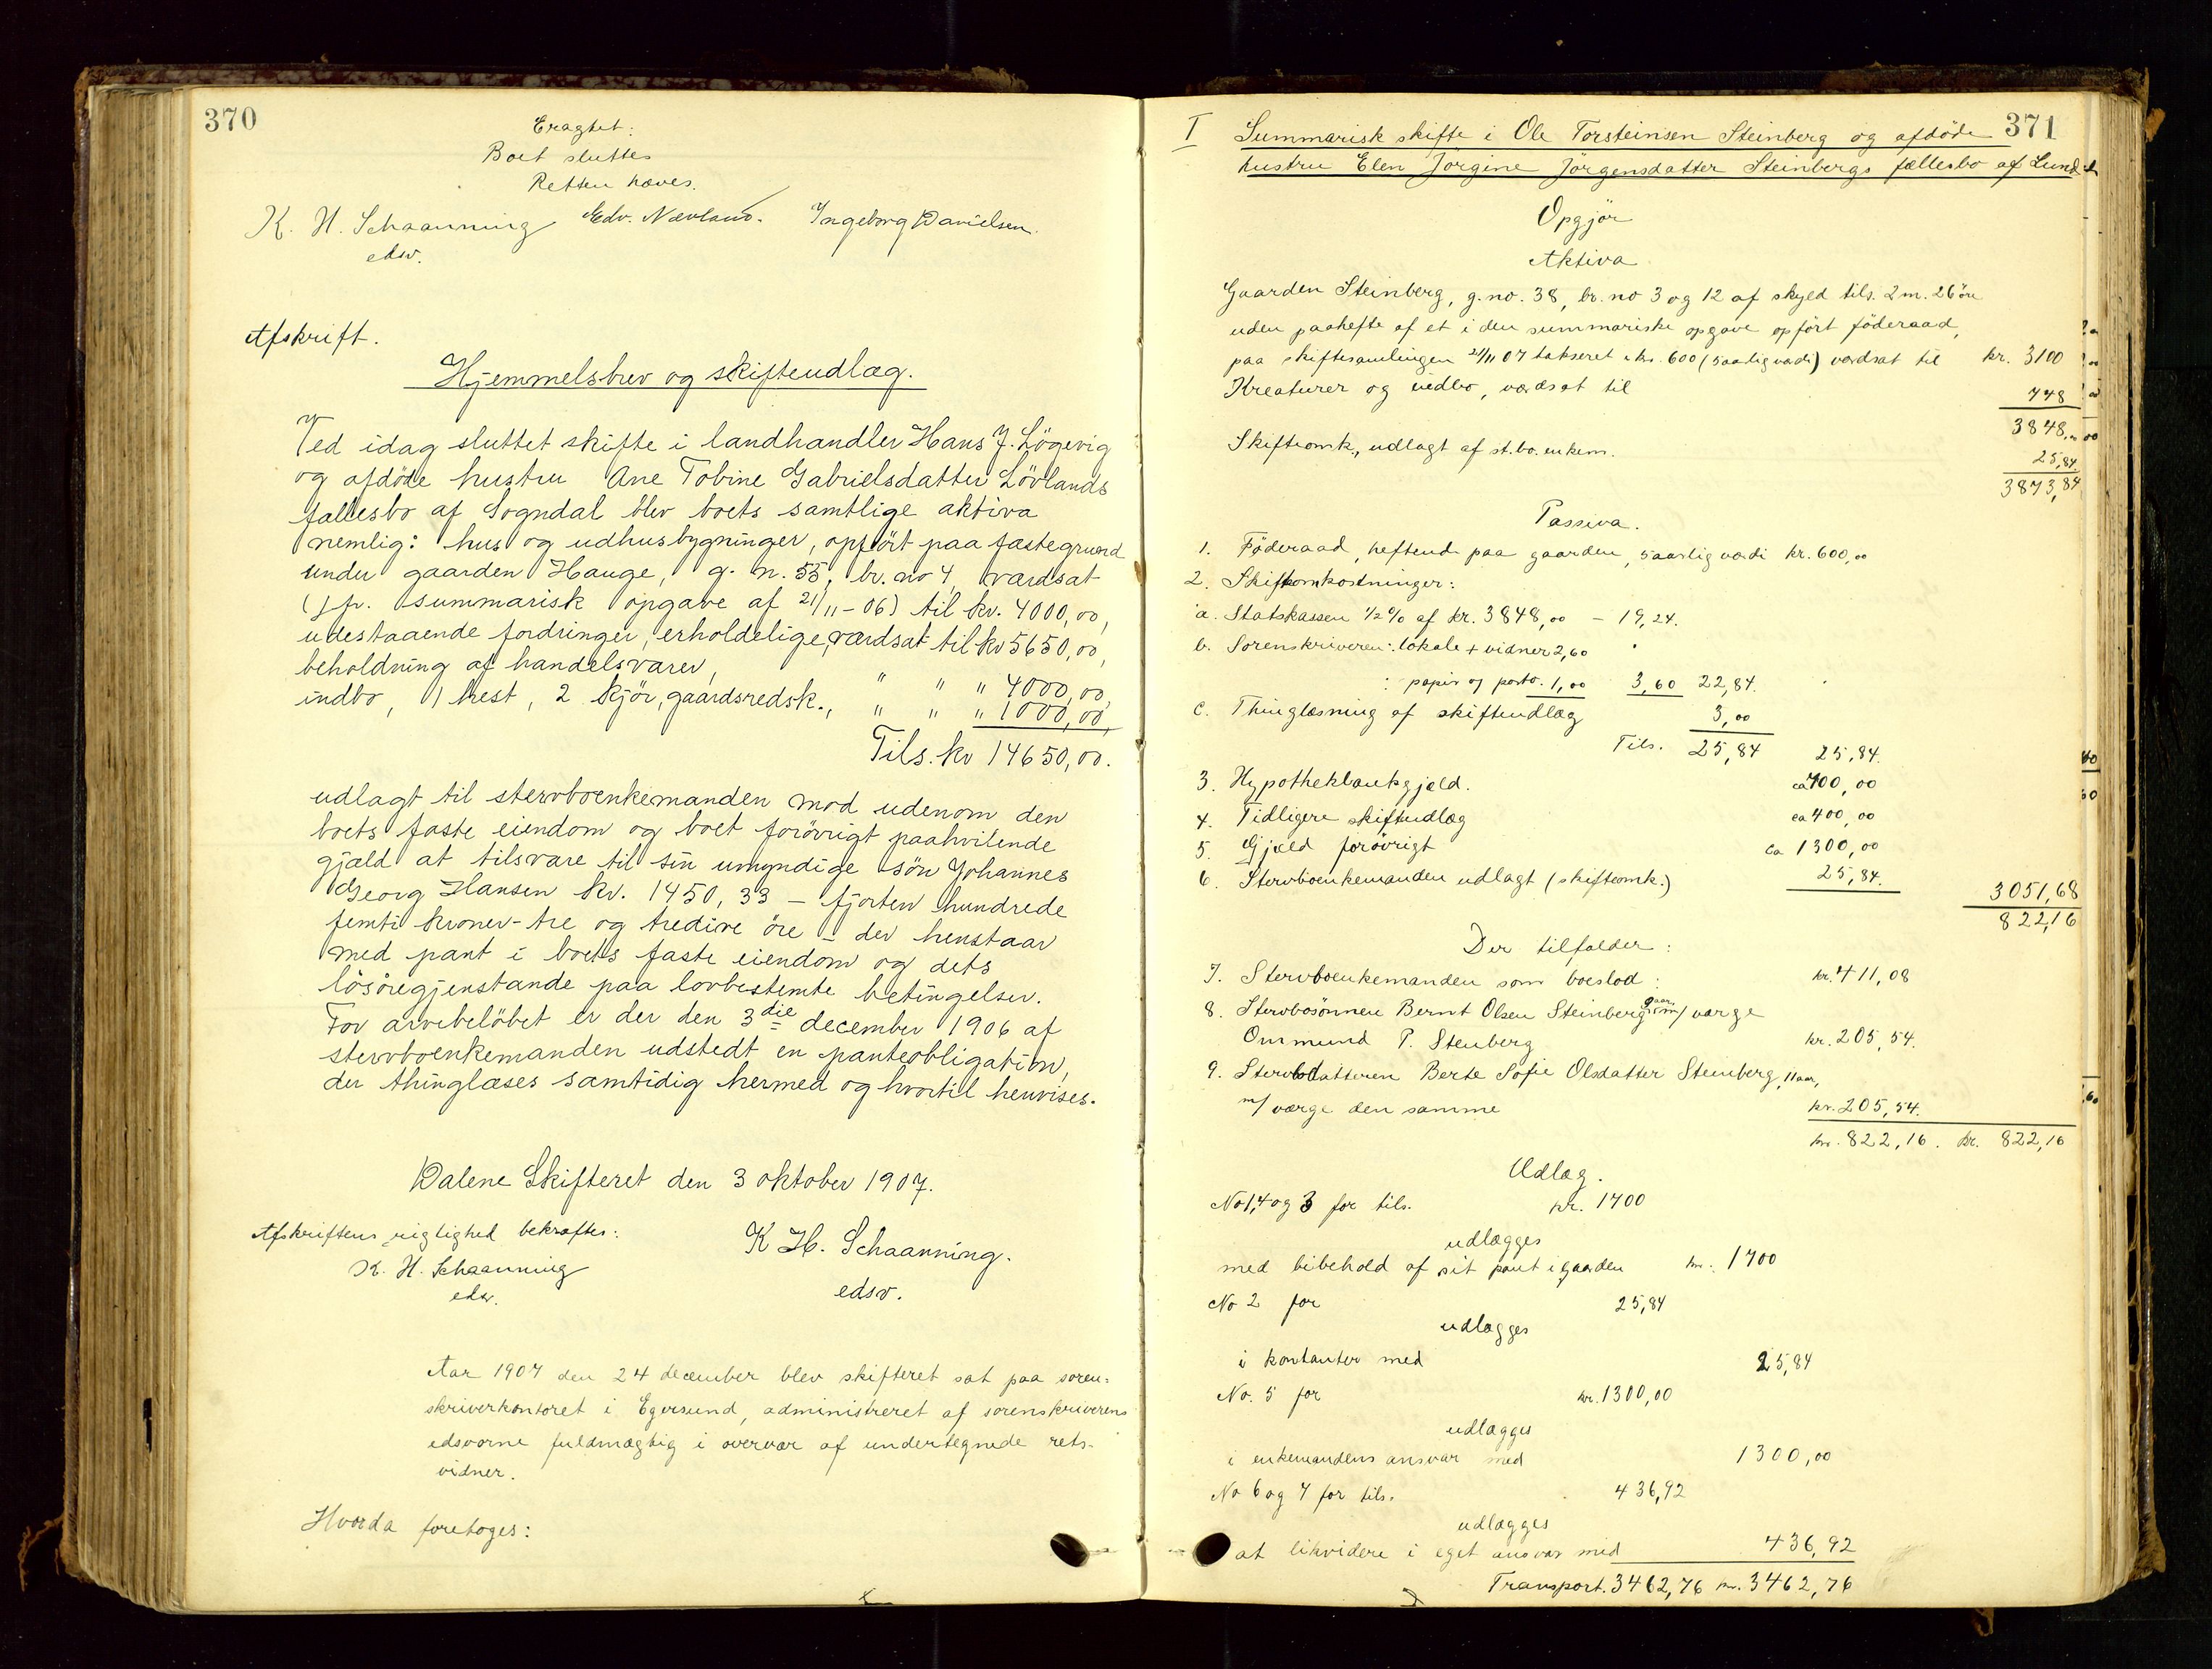 370
Eragtet:
Boet sluttes
Retten hæves.
K. H. Schaanning Edv. Nævland. Ingeborg Danielsen.
edsv.
Afskrift.
Hjemmelsbrev og skifteudlæg.
Ved idag sluttet skifte i landhandler Hans J. Lögevig
og afdöde hustru Ane Tobine Gabrielsdatter Lövlands
fællesbo af Sogndal blev boets samtlige aktiva
nemlig: hus og udhusbygninger, opfört paa fæstegrund
under gaarden Hauge, g. n. 55, br. no 4, værdsat
(jfr. summarisk opgave af 21/11-06) til kr. 4000,00,
udestaaende fordringer, erholdelige, værdsat til kr 5650,00,
beholdning af handelsvarer, " " " 4000,00,
indbo, 1 hest, 2 kjör, gaardsredsk., " " " 1000,00,
Tils. kr 14650,00.
udlagt til stervboenkemanden mod udenom den
boets faste eiendom og boet forövrigt paahvilende
gjæld at tilsvare til sin umyndige sön Johannes
Georg Hansen kr. 1450,33 – fjorten hundrede
femti kroner – tre og tredive öre – der henstaar
med pant i boets faste eiendom og dets
lösöregjenstande paa lovbestemte betingelser.
For arvebelöbet er der den 3die december 1906 af
stervboenkemanden udstedt en panteobligation,
der thinglæses samtidig hermed og hvortil henvises.
Dalene Skifteret den 3 oktober 1907.
Afskriftens rigtighed bekræftes: K H. Schaanning.
K. H. Schaanning edsv.
edsv.
Aar 1907 den 24 december blev skifteret sat paa soren=
skriverkontoret i Egersund, administreret af sorenskriverens
edsvorne fuldmægtig i overvær af undertegnede rets-
vidner.
Hvorda foretoges:
371
I Summarisk skifte i Ole Torsteinsen Steinberg og afdöde
hustru Elen Jörgine Jörgensdatter Steinbergs fællesbo af Lund
Opgjör
Aktiva
Gaarden Steinberg, g. no. 38, br. no 3 og 12 af skyld tils. 2 m. 26 öre
uden paahefte af et i den summariske opgave opfört föderaad,
paa skiftesamlingen 21/11 07 takseret kr. 600 (5aarlig værdi) værdsat til kr. 3100
Kreaturer og indbo, værdsat til 748
3848,00
Skifteomk., udlagt af st.bo.enkem. 25,84
3873,84
Passiva.
1. Föderaad, heftende paa gaarden, 5aarlig værdi kr. 600,00
2. Skifteomkostninger:
a. Statskassen 1/2 % af kr. 3848,00 – 19,24.
b. Sorenskriveren: lokale + vidner 2,60
: papir og porto. 1,00 3,60 22,84.
c. Thinglæsning af skifteudlæg 3,00
Tils. 25,84 25,84.
3. Hypothekbankgjæld. ca 700,00
4. Tidligere skifteudlæg ca 400,00
5. Gjæld forövrigt ca 1300,00
6. Stervboenkemanden udlagt (skifteomk.) 25,84. 3051,68
822,16
Der tilfalder:
7. Stervboenkemanden som boeslod: kr. 411,08
8. Stervbosönnen Bernt Olsen Steinberg aar m/ værge
Ommund P. Stenberg kr. 205,54.
9. Stervbodatteren Berte Sofie Olsdatter Steinberg, 11 aar,
m/ værge den samme kr. 205,54.
kr. 822,16. kr. 822,16
Udlæg.
No 1, 4 og 3 for tils. kr. 1700
udlægges
med bibehold af sit pant i gaarden kr. 1700
No 2 for 25,84
udlægges
i kontanter med 25,84
No. 5 for kr. 1300,00
udlægges
i enkemandens ansvar med 1300,00
No 6 og 7 for tils. 436,92
udlægges
at likvidere i eget ansvar med 436,92
Transport. 3462,76 kr. 3462,76